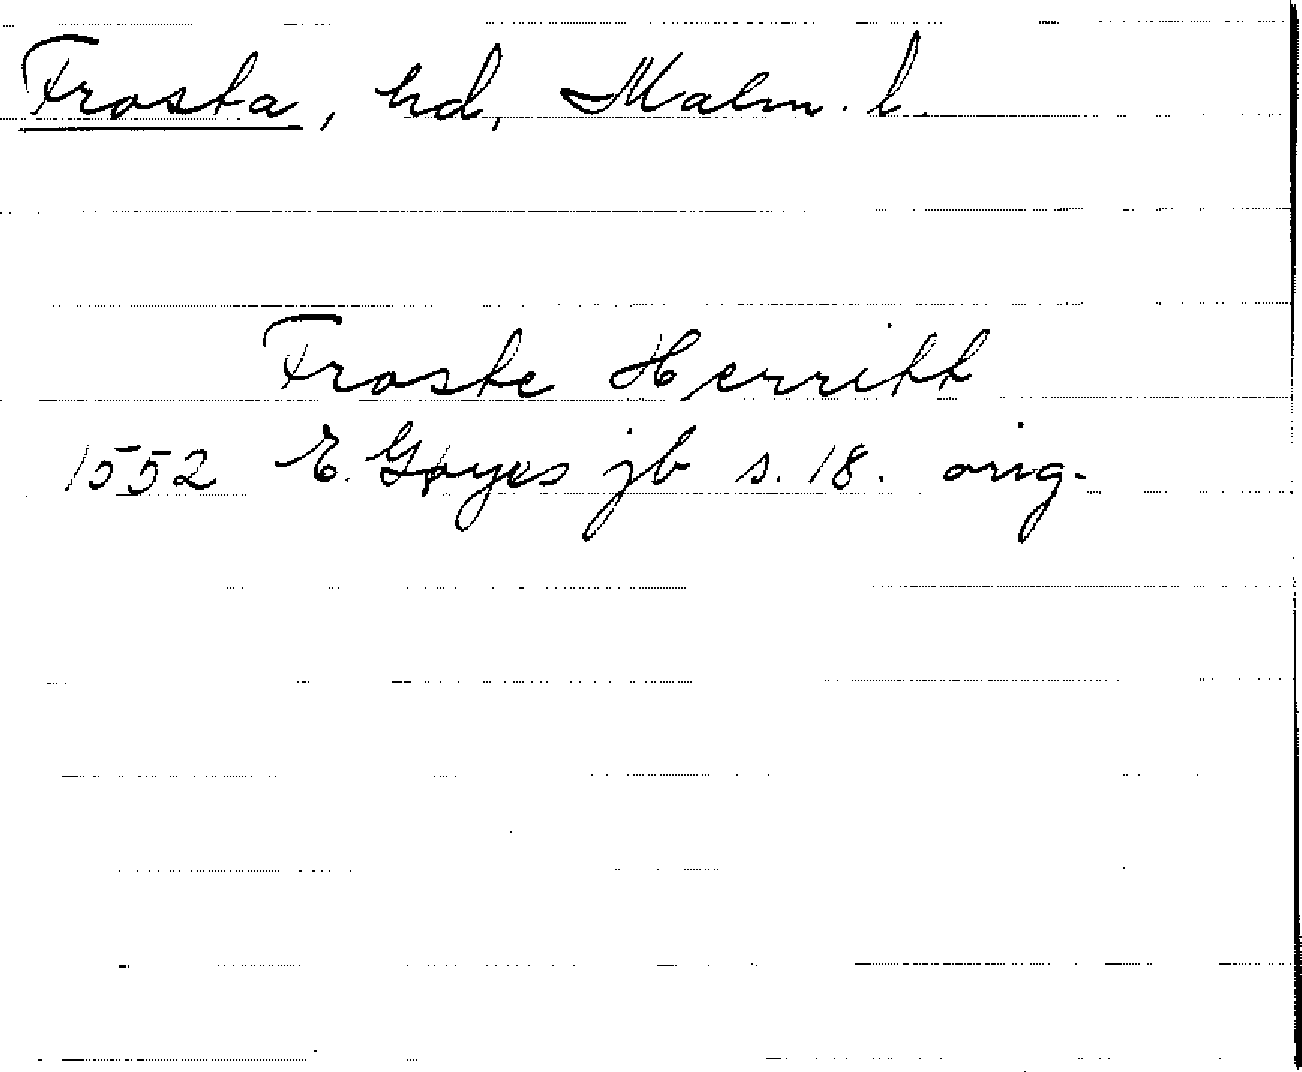 Frosta, hd, Malm. l.
Froste Herritt
1552 E. Gøyes jb s. 18. orig.